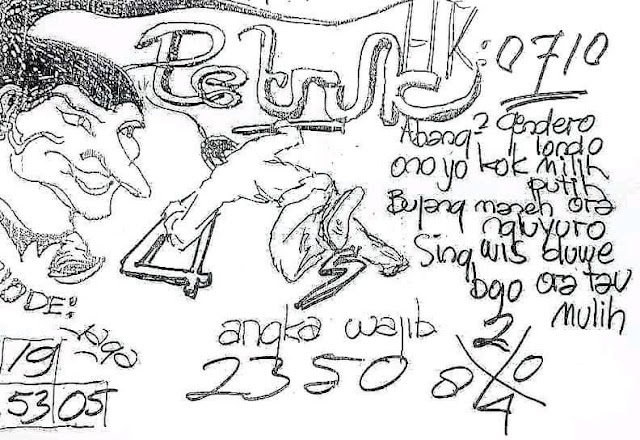 Petruk
HK: 0710
Abang2 gendero
londo
ono yo kok milih
putih
Bujang maneh ora
nguyuro
Sing wis duwe
bojo ora tau
Mulih
4 5
ODE!
angka wajib
2350
2
8 0
4
19
53 05